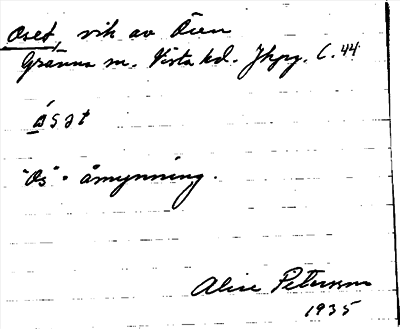 Oset, vik av Ören
Gränna sn. Vista hd. Jkpg. l. 44
ósət
"Os" = åmynning.
Alice Peterson
1935